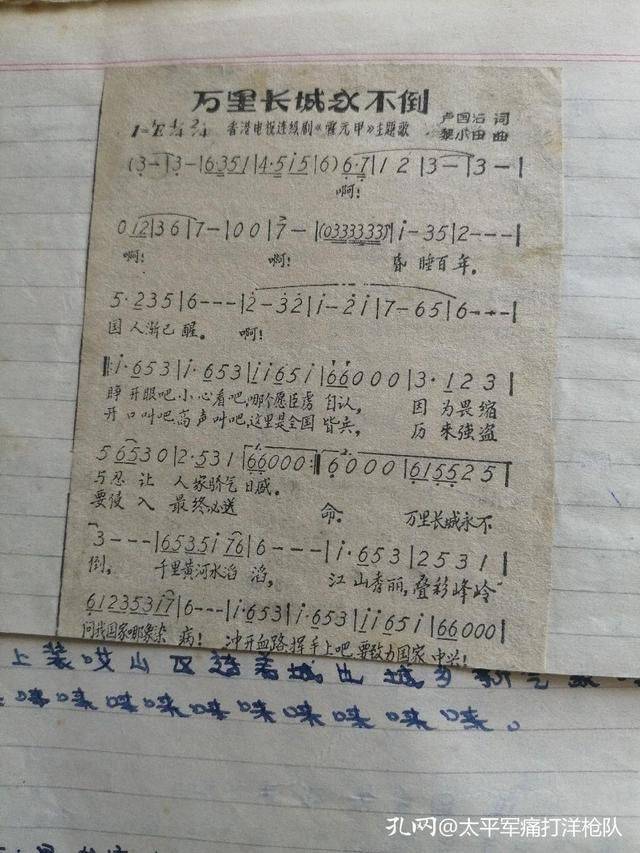 万里长城永不倒
1=♭E 4/4 2/4 香港电视连续剧《霍元甲》主题歌 卢国沾 词
黎小田 曲
(3-|3-|6·351|4·515|6)6·7|1 2|3-|3-|
啊!
0 12|36|7-|00|7-|(0333333)|i-35|2---|
啊! 啊! 昏睡百年。
5·235|6---|2-32|i-2i|7-65|6---|
国人渐已醒。 啊!
‖:i·653|i·653|iii65i|66000|3·123|
睁开眼吧,小心看吧,哪个愿臣虏自认, 因为畏缩
开口叫吧,高声叫吧,这里是全国皆兵, 历来强盗
5 6530|2·531|66000:‖6000|615525|
与忍让 人家骄气日盛。
要侵入 最终必送 命。 万里长城永不
3---|6535i76|6---|i·653|2531|
倒, 千里黄河水滔滔, 江山秀丽,叠彩峰岭
612353i7|6---|i·653|i·653|iii65i|66000|
问我国家哪象染病! 冲开血路,挥手上吧,要致力国家中兴!
咪咪咪咪咪咪咪咪咪。
孔网@太平军痛打洋枪队